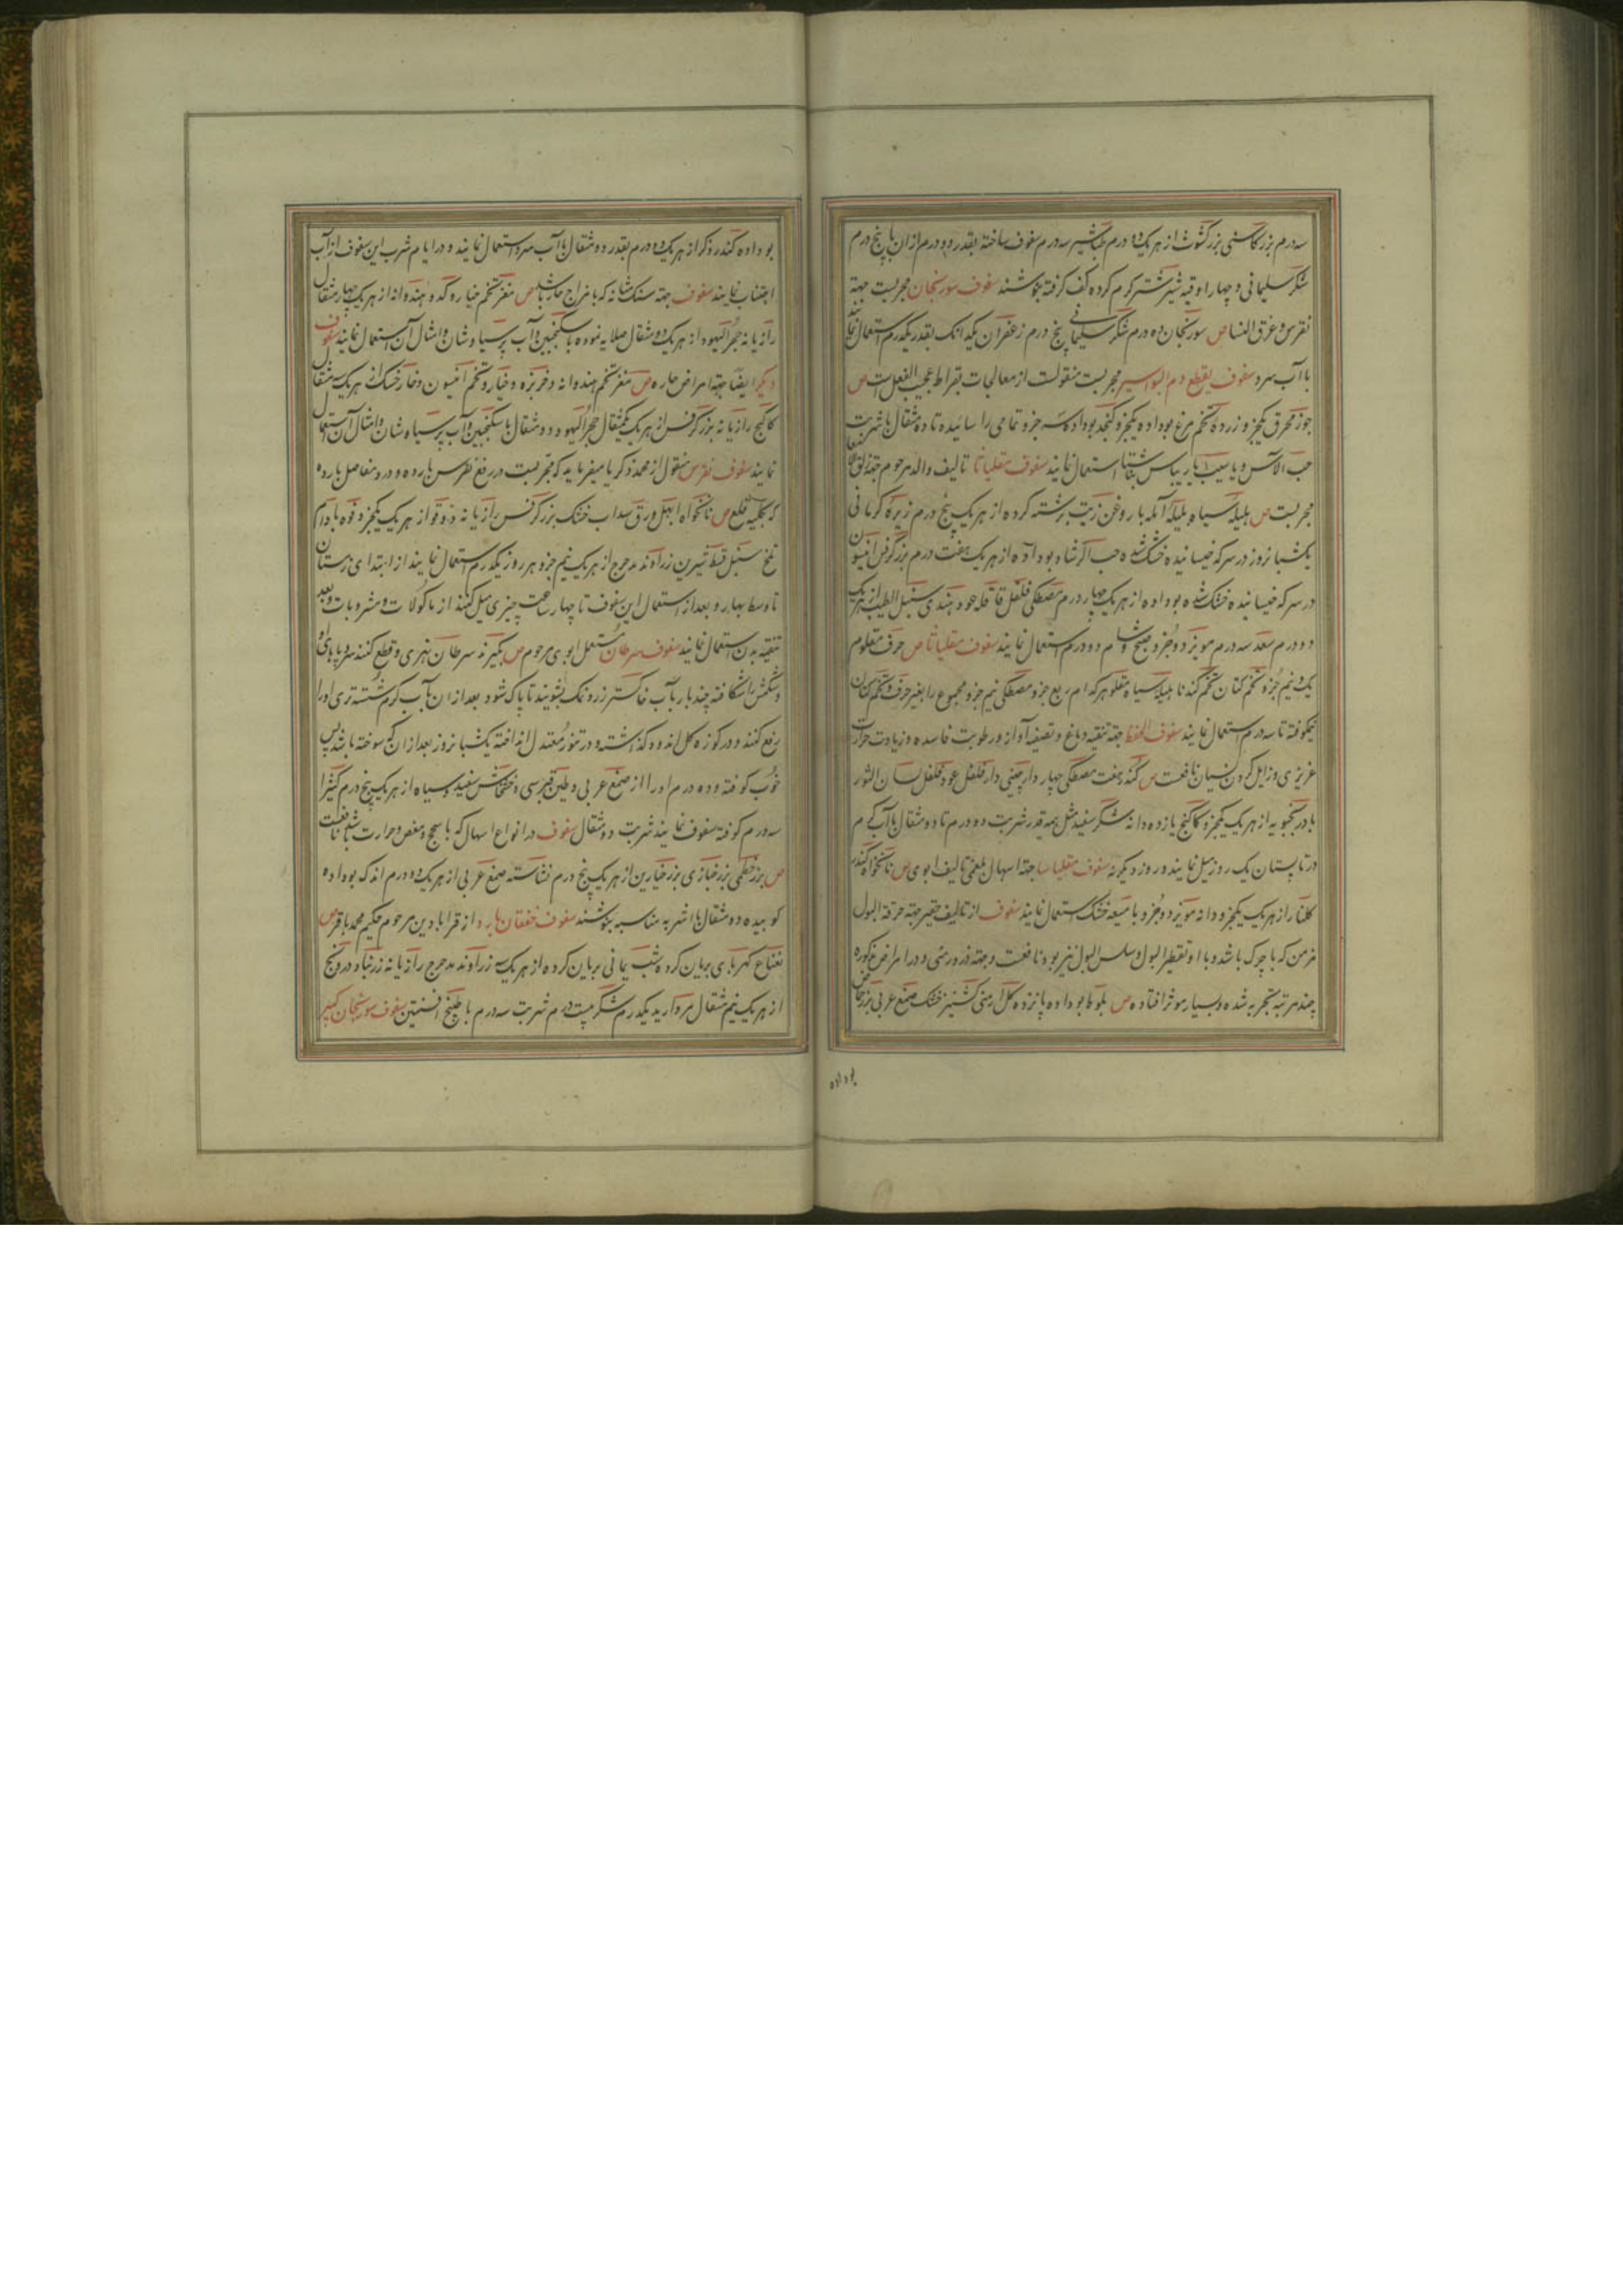 سه درم بزر کاسنی بزر کشوث از هر یک ده درم طباشیر سه درم سفوف ساخته بقدر دو درم از ان با پنج درم
شکر سلیمانی و چهار اوقیه شیر شتر کرم کرده کف کرفته بنوشند سفوف سورنجان مجربست جهة
نقرس و عرق النسا ص سورنجان ده درم شکر سلیمانی پنج درم زعفران یکدانک بقدر یکدرم استعمال نمایند
با آب سرد سفوف یقطع دم البواسیر مجربست منقولست از معالجات بقراط عجیب الفعل است ص
جوز محرق یکجزو زرده تخم مرغ بوداده یکجزو کنجد بوداده سه جزو تمامی را سائیده تا ده مثقال با شربت
حب الآس و یا سیب یا ریباس شتا استعمال نمایند سفوف مقلیاثا تالیف والد مرحوم جهة زلق الامعا
مجربست ص هلیله سیاه بلیله آمله با روغن زیت برشته کرده از هر یک پنج درم زیره کرمانی
یکشبانروز در سرکه خیسانیده خشک شده حب الرشاد بوداده از هر یک هفت درم بزر کرفس انیسون
در سرکه خیسانیده خشک شده بوداده از هر یک چهار درم مصطکی فلفل قاقله عود هندی سنبل الطیب از هر یک
دو درم سعد سه درم مویز دو جزو صبح و شام دو درم استعمال نمایند سفوف مقلیاثا ص حرف مقلو
یک و نیم جزو تخم کتان تخم کندنا هلیله سیاه مقلو هر کدام ربع جزو مصطکی نیم جزو مجموع را بغیر حرف و تخم کتان
نیمکوفته تا سه درم استعمال نمایند سفوف الحفظ جهة تنقیه دماغ و تصفیه آواز و رطوبت فاسده و زیادت حرارت
غریزی و زایل کردن نسیان نافعست ص کندر هفت مصطکی چهار دارچینی دارفلفل عود فلفل لسان الثور
بادرنجبویه از هر یک یکجزو کاکنج یازده دانه شکر سفید مثل همه قدر شربت دو درم تا دو مثقال با آب کرم
در تابستان یک روز میل نمایند و روز دیکر نه سفوف مقلیاسا جهة اسهال بلغمی تالیف ابوی ص نانخواه کندر
کلنار از هر یک یکجزو دانه مویز دو جزو با میعه خشک استعمال نمایند سفوف از تالیف حقیر جهة حرقة البول
مزمن که با چرک باشد و با او تقطیر البول و سلس البول نیز بود نافعست و جهة درور منی و در امراض مذکوره
چند مرتبه بتجربه شده و بسیار موثر افتاده ص بلوط بوداده پانزده کل ارمنی کشنیز خشک صمغ عربی بزر خاص
بوداده
بوداده کندر ذکر از هر یک ده درم بقدر دو مثقال با آب سرد استعمال نمایند و در ایام شرب این سفوف از آب
اجتناب نمایند سفوف جهة سنک مثانه که با مزاج حار باشد ص مغز تخم خیار و کدو و هندوانه از هر یک چهار مثقال
رازیانه حجر الیهود از هر یک دو مثقال صلایه نموده با سکنجبین و آب پرسیاوشان و امثال آن استعمال نمایند سفوف
دیکر ایضا جهة امراض حاره ص مغز تخم هندوانه و خربزه و خیار و تخم انیسون و خار خسک از هر یک سه مثقال
کاکنج رازیانه بزر کرفس از هر یک یکمثقال حجر الیهود دو مثقال با سکنجبین و آب پرسیاوشان و امثال آن استعمال
نمایند سفوف نقرس منقول از محمد زکریا میفرماید که مجربست در رفع نقرس بارده و درد مفاصل بارده
که بکلیه قلع ص نانخواه ابهل ورق سداب خشک بزر کرفس رازیانه دوقو از هر یک یکجزو فوه بادام
تلخ سنبل قسط شیرین زراوند مدحرج از هر یک نیم جزو هر روز یکدرم استعمال نمایند از ابتدای زمستان
تا وسط بهار و بعد از استعمال این سفوف تا چهار ساعت چیزی میل نکنند از ماکولات و مشروبات و بعد
تنقیه بدن استعمال نمایند سفوف سرطان مستعمل ابوی مرحوم ص بکیرند سرطان نهری و قطع کنند سر و پاهای او
و شکمش را شکافته چند بار با آب خاکستر زرو نمک بشویند تا پاک شود بعد از ان با آب کرم شسته تری او را
رفع کنند و در کوزه کل اندوده کذاشته و در تنور معتدل انداخته یکشبانروز بعد از ان که سوخته باشد پس
خوب کوفته و ده درم او را از صمغ عربی و طین قبرسی و خشخاش سفید و سیاه از هر یک پنج درم کتیرا
سه درم کوفته سفوف نمایند شربت دو مثقال سفوف در انواع اسهال که با سحج و مغص و حرارت باشد نافعست
ص بزر خطمی بزر خبازی بزر خیارین از هر یک پنج درم نشاسته صمغ عربی از هر یک ده درم اندک بوداده
کوبیده دو مثقال با اشربه مناسبه بنوشند سفوف خفقان بارد از قرابادین مرحوم حکیم محمد باقر ص
نعناع کهربای بریان کرده شب یمانی بریان کرده از هر یک سه زراوند مدحرج رازیانه زرنباد درونج
از هر یک نیم مثقال مروارید یکدرم شکر بیست درم شربت سه درم با طبیخ افسنتین سفوف سورنجان کبیر